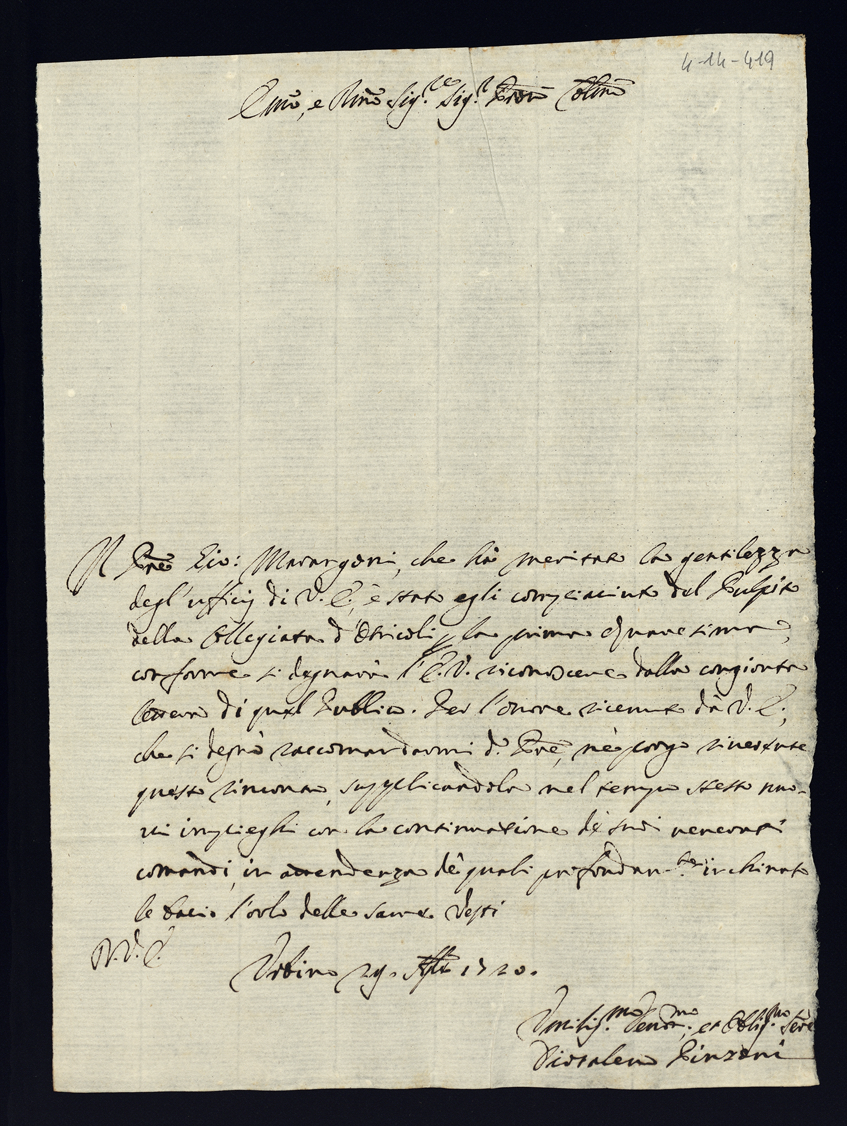 4-14-419
Emo, e Rmo Sig.re Sig.r Pron Colmo
Il Pre Gio: Marangoni, che hà meritato la gentilezza
degl'ufficij di V. E., è stato egli compiaciuto del Pulpito
della Collegiata d'Otricoli p la prima Quaresima,
conforme si degnarà l'E. V. riconoscere dalla congionta
lettera di quel Publico. Per l'onore ricevuto dà V. E.,
che si degnò raccomandarmi d.o Pre, nè porgo riverente
questo rincontro, supplicandola nel tempo stesso nuo-
vi impieghi con la continuazione de suoi venerati
comandi, in attendenza de quali profondam.te inchinato
le bacio l'orlo delle sacre Vesti
D. V. E.
Urbino 29. 1720.
Umiliss.mo Devot.mo, et Oblig.mo Serre
Pinzoni